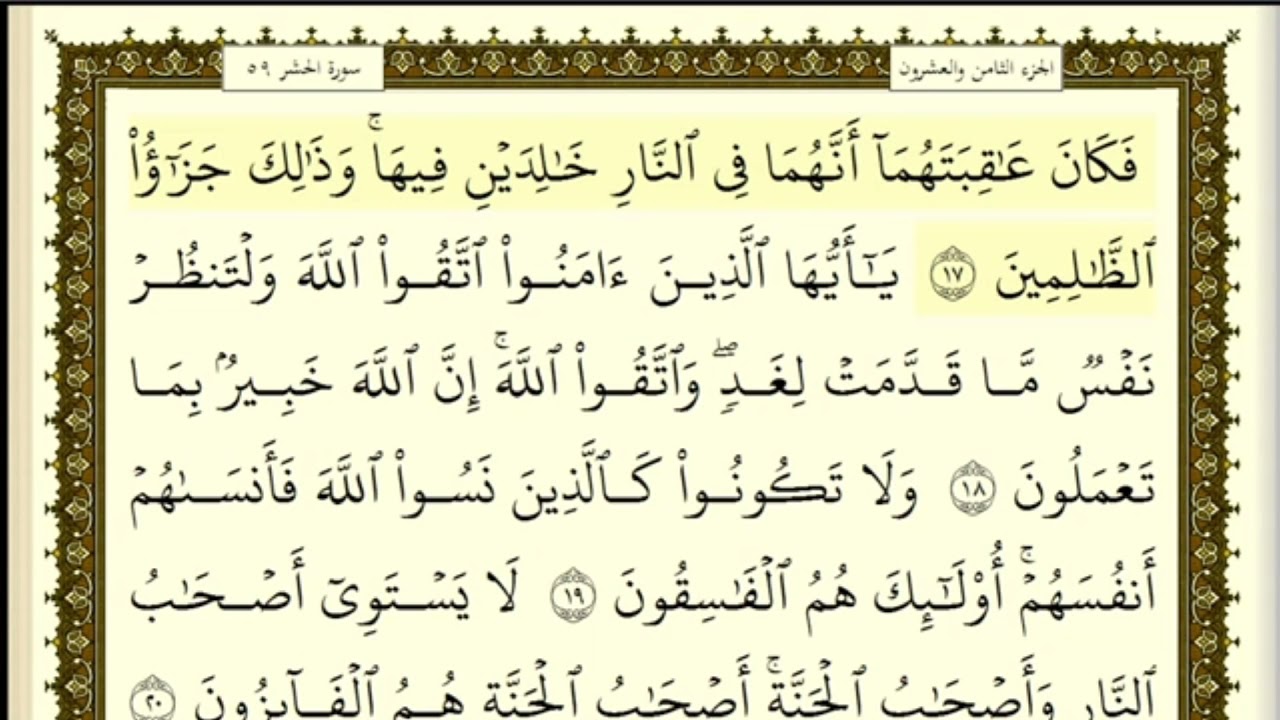 الجزء الثامن والعشرون
سورة الحشر ٥٩
فَكَانَ عَٰقِبَتَهُمَآ أَنَّهُمَا فِى ٱلنَّارِ خَٰلِدَيْنِ فِيهَا ۚ وَذَٰلِكَ جَزَٰٓؤُا۟
ٱلظَّٰلِمِينَ ١٧ يَٰٓأَيُّهَا ٱلَّذِينَ ءَامَنُوا۟ ٱتَّقُوا۟ ٱللَّهَ وَلْتَنظُرْ
نَفْسٌ مَّا قَدَّمَتْ لِغَدٍ ۖ وَٱتَّقُوا۟ ٱللَّهَ ۚ إِنَّ ٱللَّهَ خَبِيرٌۢ بِمَا
تَعْمَلُونَ ١٨ وَلَا تَكُونُوا۟ كَٱلَّذِينَ نَسُوا۟ ٱللَّهَ فَأَنسَىٰهُمْ
أَنفُسَهُمْ ۚ أُو۟لَٰٓئِكَ هُمُ ٱلْفَٰسِقُونَ ١٩ لَا يَسْتَوِىٓ أَصْحَٰبُ
ٱلنَّارِ وَأَصْحَٰبُ ٱلْجَنَّةِ ۚ أَصْحَٰبُ ٱلْجَنَّةِ هُمُ ٱلْفَآئِزُونَ ٢٠